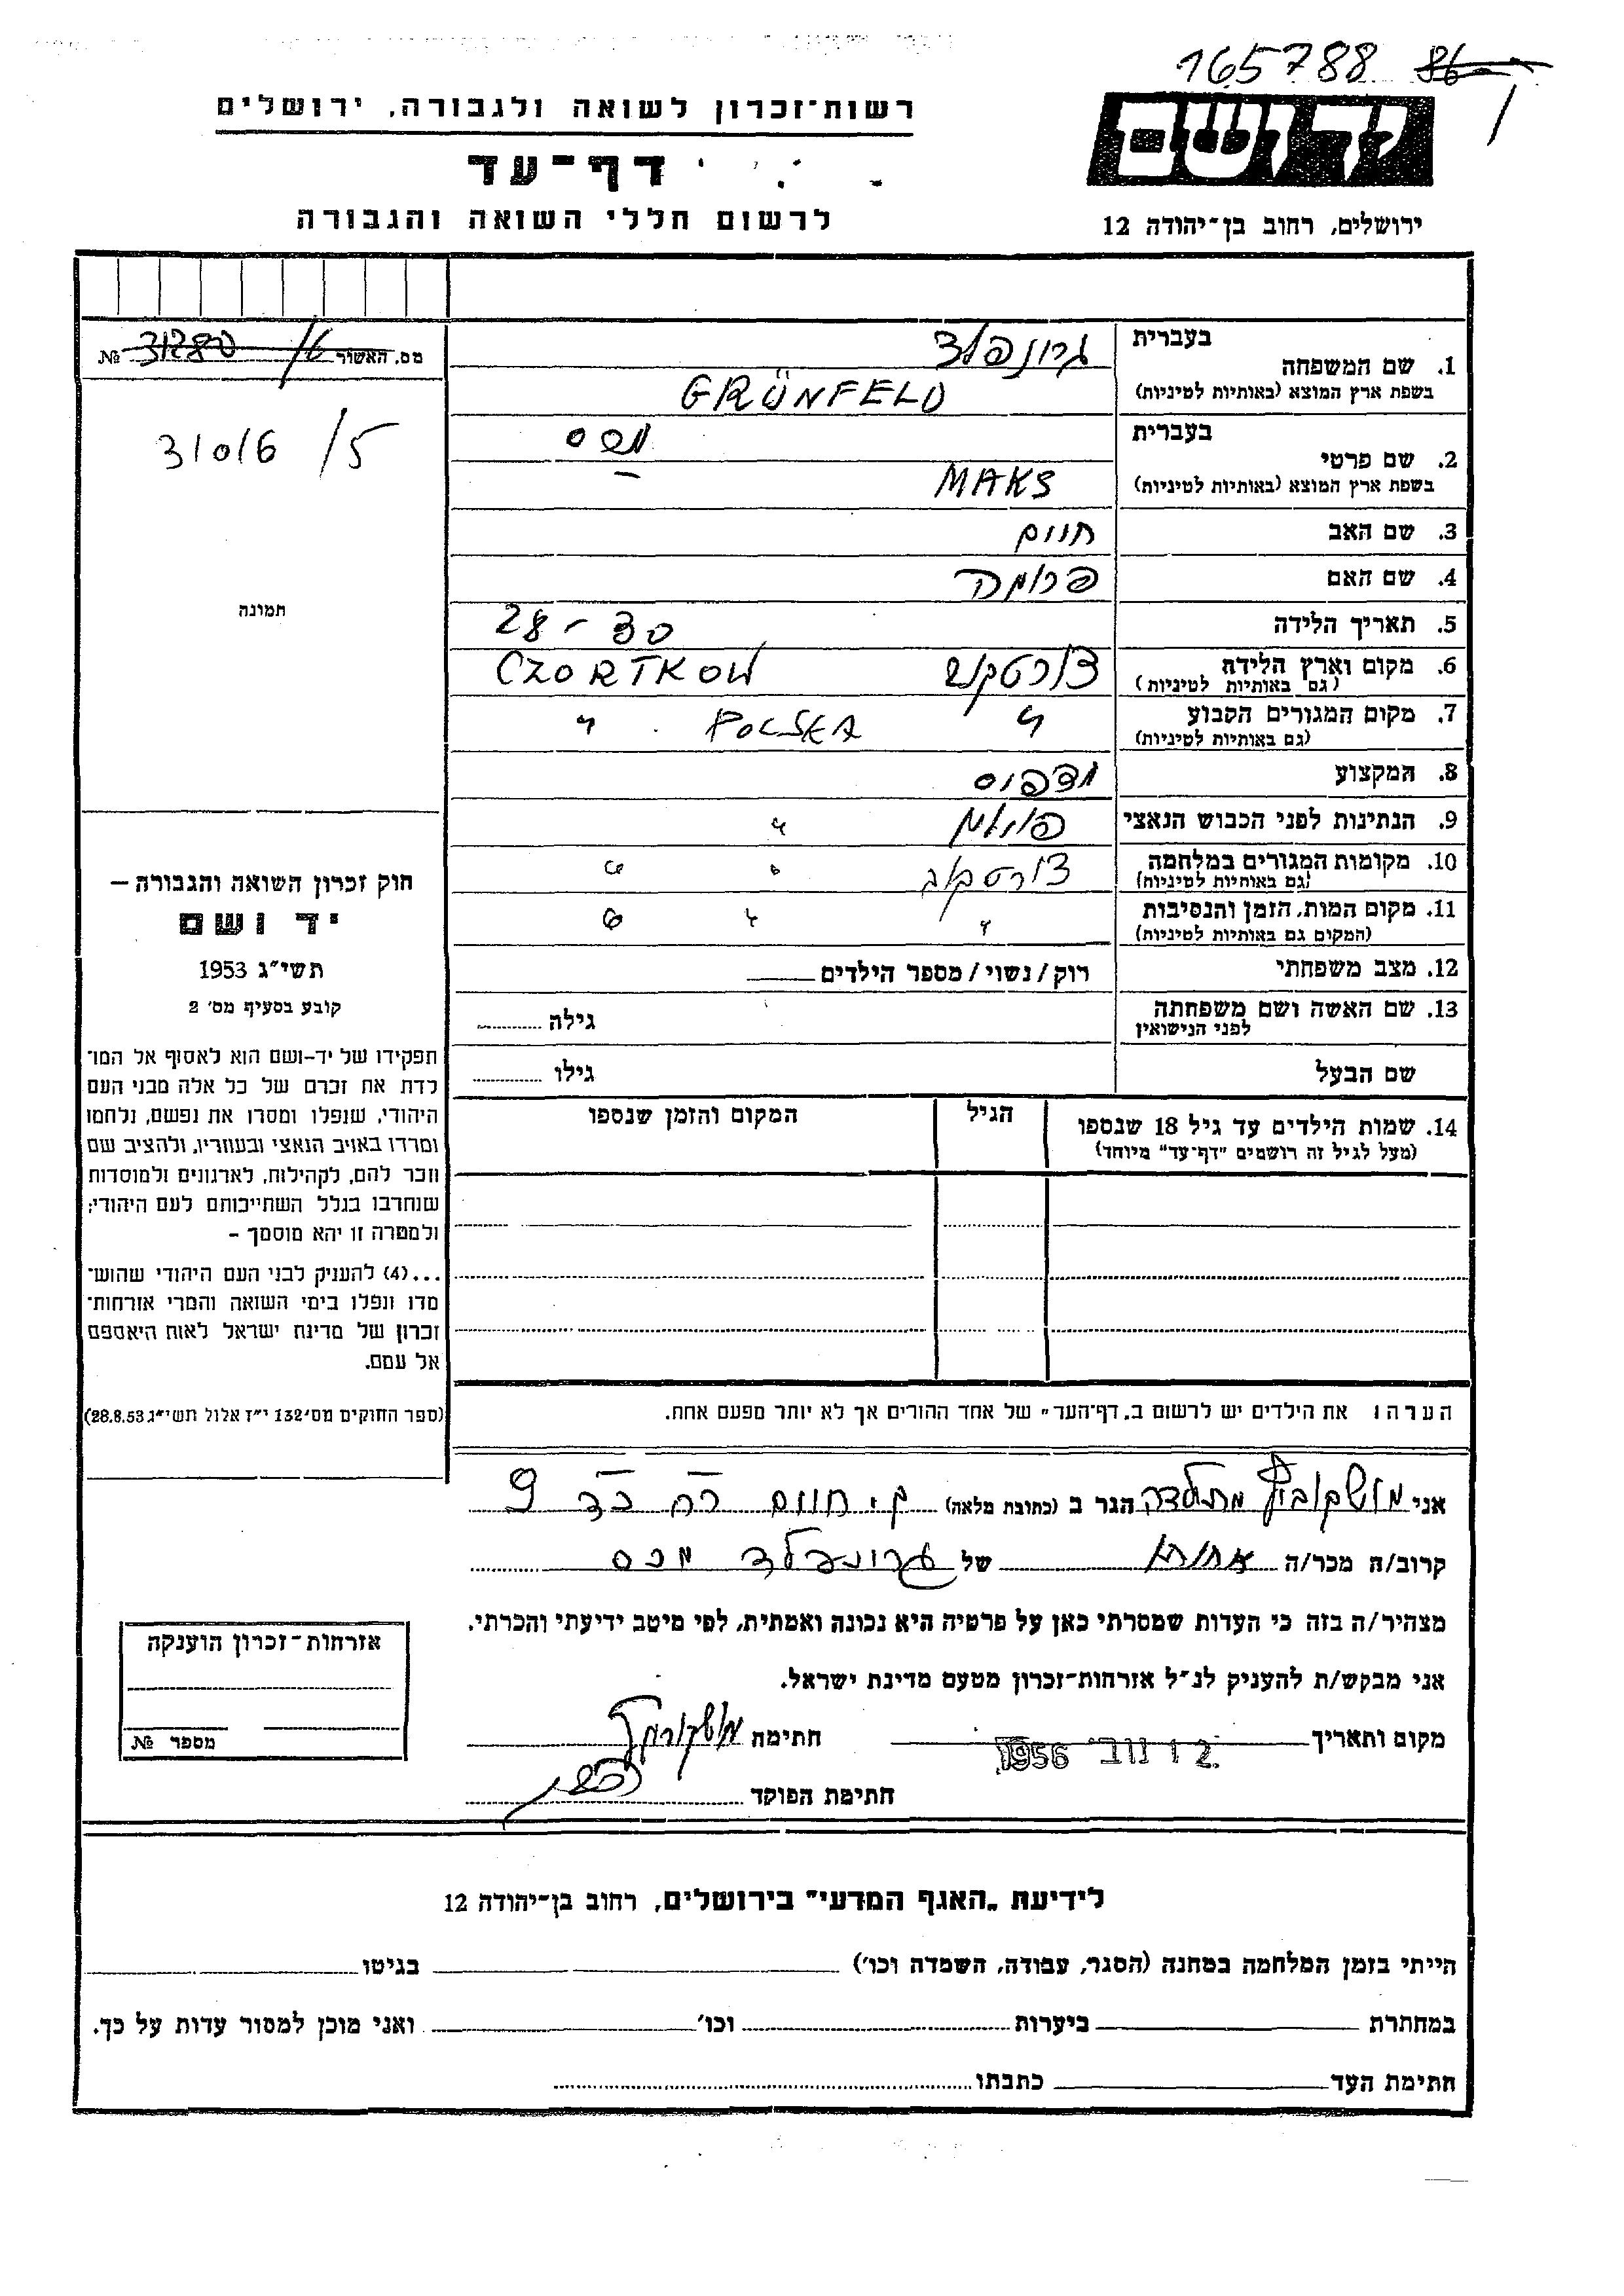 165788 86
רשות־זכרון לשואה ולגבורה, ירושלים
יד ושם
דף־עד
ירושלים, רחוב בן־יהודה 12
לרשום חללי השואה והגבורה
מס. האשור № 31280 /6
31016 /5
תמונה
1. שם המשפחה בעברית גרונפלד
בשפת ארץ המוצא (באותיות לטיניות) GRÜNFELD
2. שם פרטי בעברית מכס
בשפת ארץ המוצא (באותיות לטיניות) MAKS
3. שם האב חיים
4. שם האם פרומה
5. תאריך הלידה 28 - 30
6. מקום וארץ הלידה צ'ורטקוב CZORTKOW
(גם באותיות לטיניות)
7. מקום המגורים הקבוע " POLSKA "
(גם באותיות לטיניות)
8. המקצוע מדפיס
9. הנתינות לפני הכבוש הנאצי פולנית "
10. מקומות המגורים במלחמה צ'ורטקוב " "
(גם באותיות לטיניות)
11. מקום המות, הזמן והנסיבות " " "
(המקום גם באותיות לטיניות)
12. מצב משפחתי רוק/נשוי/מספר הילדים
13. שם האשה ושם משפחתה גילה
לפני הנישואין
שם הבעל גילו
14. שמות הילדים עד גיל 18 שנספו הגיל המקום והזמן שנספו
(מעל לגיל זה רושמים "דף־עד" מיוחד)
חוק זכרון השואה והגבורה –
יד ושם
תשי"ג 1953
קובע בסעיף מס' 2
תפקידו של יד-ושם הוא לאסוף אל המו־
לדת את זכרם של כל אלה מבני העם
היהודי, שנפלו ומסרו את נפשם, נלחמו
ומרדו באויב הנאצי ובעוזריו, ולהציב שם
וזכר להם, לקהילות, לארגונים ולמוסדות
שנחרבו בגלל השתייכותם לעם היהודי;
ולמטרה זו יהא מוסמך –
...(4) להעניק לבני העם היהודי שהוש־
מדו ונפלו בימי השואה והמרי אזרחות־
זכרון של מדינת ישראל לאות היאספם
אל עמם.
(ספר החוקים מס' 132 י"ז אלול תשי"ג 28.8.53)
הערה: את הילדים יש לרשום ב„דף־העד" של אחד ההורים אך לא יותר מפעם אחת.
אני מושקוביץ מתילדה הגר ב (כתובת מלאה) ק. חיים רח כד 9
קרוב/ה מכר/ה אחות של גרונפלד מכס
מצהיר/ה בזה כי העדות שמסרתי כאן על פרטיה היא נכונה ואמתית, לפי מיטב ידיעתי והכרתי.
אני מבקש/ת להעניק לנ"ל אזרחות־זכרון מטעם מדינת ישראל.
מקום ותאריך 12 נוב' 1956 חתימה מושקוביץ
חתימת הפוקד
אזרחות־זכרון הוענקה
מספר №
לידיעת „האגף המדעי" בירושלים, רחוב בן־יהודה 12
הייתי בזמן המלחמה במחנה (הסגר, עבודה, השמדה וכו') בגיטו
במחתרת ביערות וכו' ואני מוכן למסור עדות על כך.
חתימת העד כתבתו